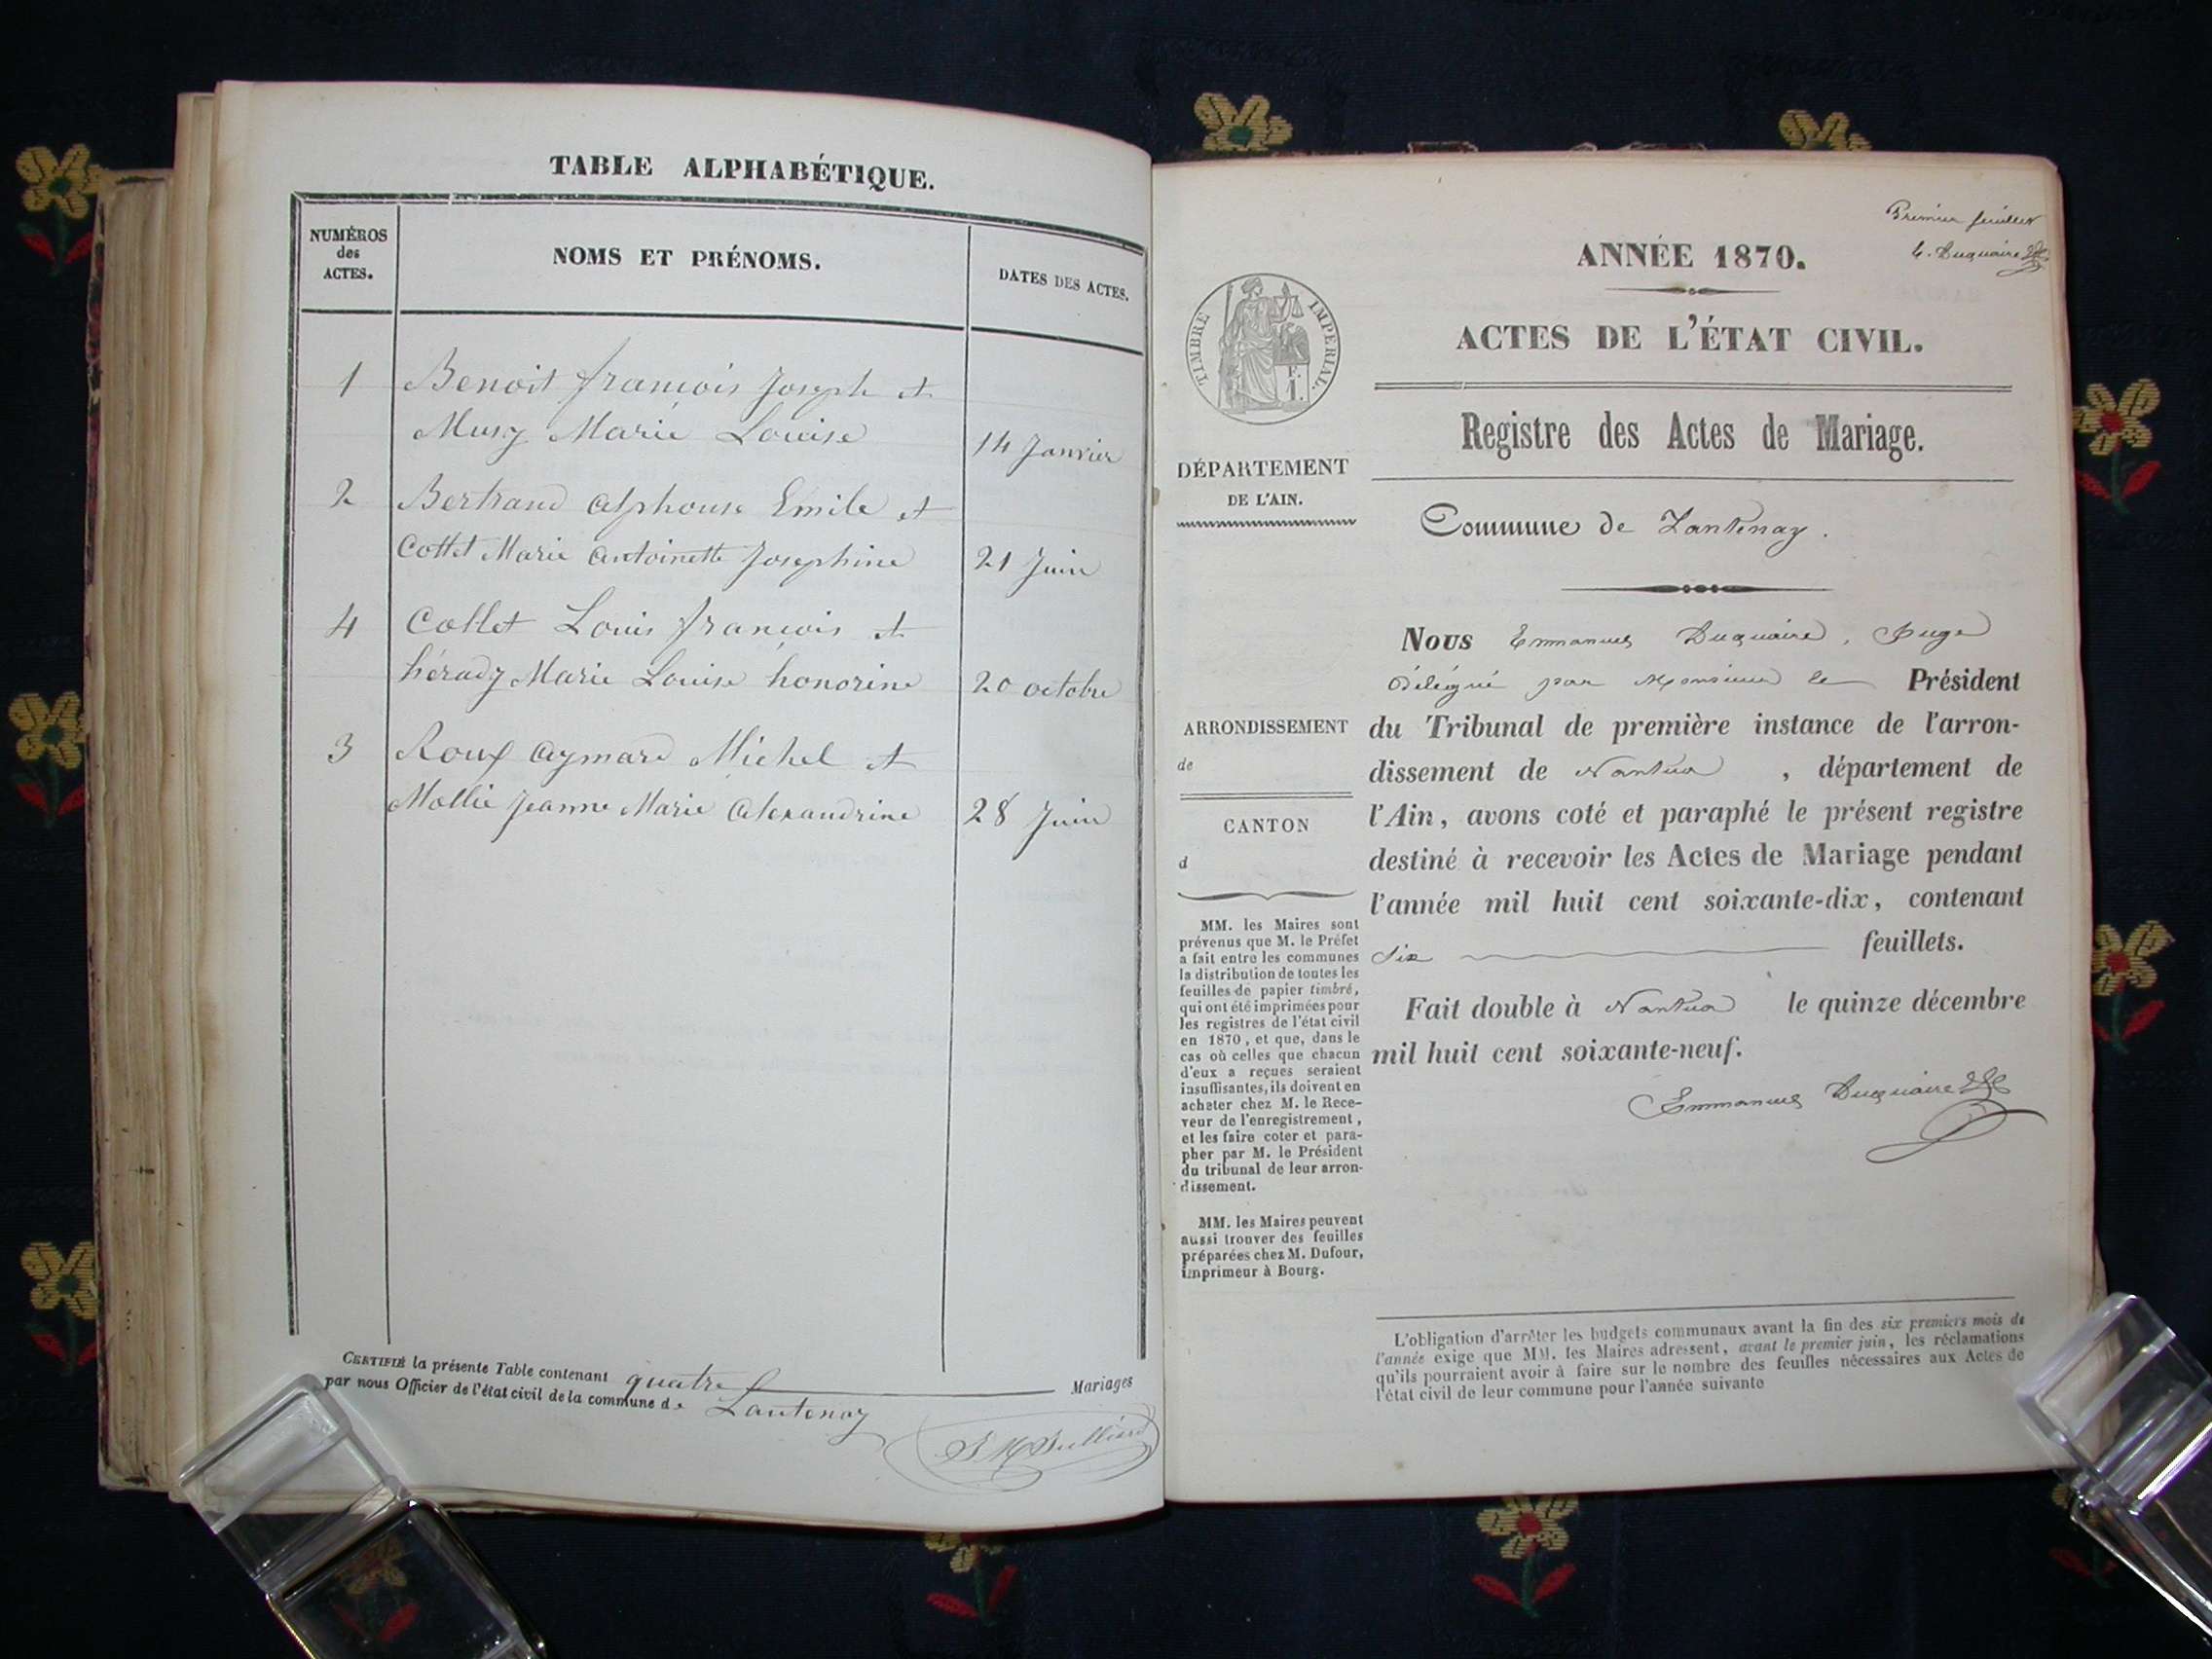 TABLE ALPHABÉTIQUE.
NUMÉROS
des
ACTES.
NOMS ET PRÉNOMS.
DATES DES ACTES.
1 Benoit françois Joseph et
Musy Marie Louise 14 Janvier
2 Bertrand alphonse Emile et
Cottet Marie antoinette Josephine 21 Juin
4 Collet Louis françois et
hérady Marie Louise honorine 20 octobre
3 Roux aymard Michel et
Mollie Jeanne Marie alexandrine 28 Juin
CERTIFIÉ la présente Table contenant quatre Mariages
par nous Officier de l'état civil de la commune de Lantenay
Premier feuillet
E. Duquaire
ANNÉE 1870.
ACTES DE L'ÉTAT CIVIL.
TIMBRE IMPÉRIAL.
F.
1.
Registre des Actes de Mariage.
DÉPARTEMENT
DE L'AIN.
Commune de Lantenay.
Nous Emmanuel Duquaire, Juge
Délégué par Monsieur le Président
du Tribunal de première instance de l'arron-
dissement de Nantua, département de
l'Ain, avons coté et paraphé le présent registre
destiné à recevoir les Actes de Mariage pendant
l'année mil huit cent soixante-dix, contenant
Six feuillets.
Fait double à Nantua le quinze décembre
mil huit cent soixante-neuf.
Emmanuel Duquaire
ARRONDISSEMENT
de
CANTON
d
MM. les Maires sont
prévenus que M. le Préfet
a fait entre les communes
la distribution de toutes les
feuilles de papier timbré,
qui ont été imprimées pour
les registres de l'état civil
en 1870, et que, dans le
cas où celles que chacun
d'eux a reçues seraient
insuffisantes, ils doivent en
acheter chez M. le Rece-
veur de l'enregistrement,
et les faire coter et para-
pher par M. le Président
du tribunal de leur arron-
dissement.
MM. les Maires peuvent
aussi trouver des feuilles
préparées chez M. Dufour,
imprimeur à Bourg.
L'obligation d'arrêter les budgets communaux avant la fin des six premiers mois de
l'année exige que MM. les Maires adressent, avant le premier juin, les réclamations
qu'ils pourraient avoir à faire sur le nombre des feuilles nécessaires aux Actes de
l'état civil de leur commune pour l'année suivante